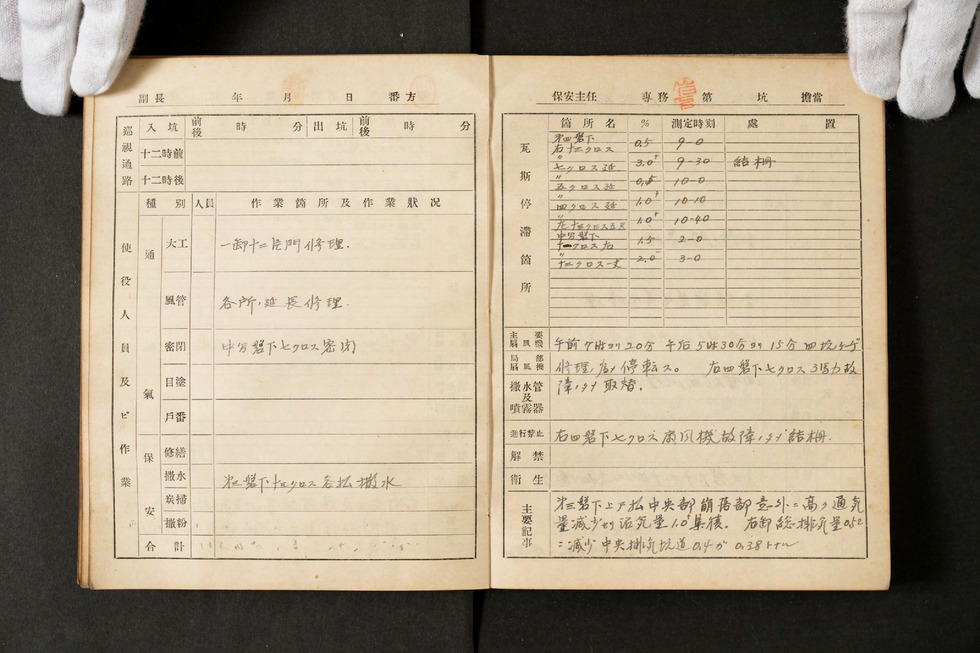 副長 年 月 日 番方
巡視通路 入坑 前後 時 分 出坑 前後 時 分
十二時前
十二時後
種別 人員 作業箇所及作業狀況
使役人員及ビ作業
通氣保安
大工 一卸十二片門修理.
風管 各所,延長修理.
密閉 中分盤下七クロス密閉
目塗
戶番
修繕
撒水 第二盤下十二クロス各払撒水
炭掃
撒粉
合計
保安主任 専務 第 坑 擔當
瓦斯停滯箇所
箇所名 % 測定時刻 處置
第四盤下
右十二クロス 0.5 9-0
〃 七クロス延 3.0+ 9-30 結柵
〃 五クロス延 0.5 10-0
〃 四クロス延 1.0+ 10-10
1.0+ 10-40
中分盤下
十一クロス右 1.5 2-0
〃 2.0 3-0
主要扇風機 午前7時ヨリ20分 午后5時30分ヨリ15分 四坑
局部扇風機 修理ノ為メ停転ス。 右四盤下七クロス3馬力故
撒水管及噴霧器 障ノタメ取替.
進行禁止 右四盤下七クロス扇風機故障ノタメ結柵.
解禁
衛生
主要記事
第三盤下上ゲ払中央部崩落部意外ニ高ク通気
量減少セリ 1.0集積。 右卸総排気量0.52
ニ減少 中央排気坑道0.4ガ0.38トナル